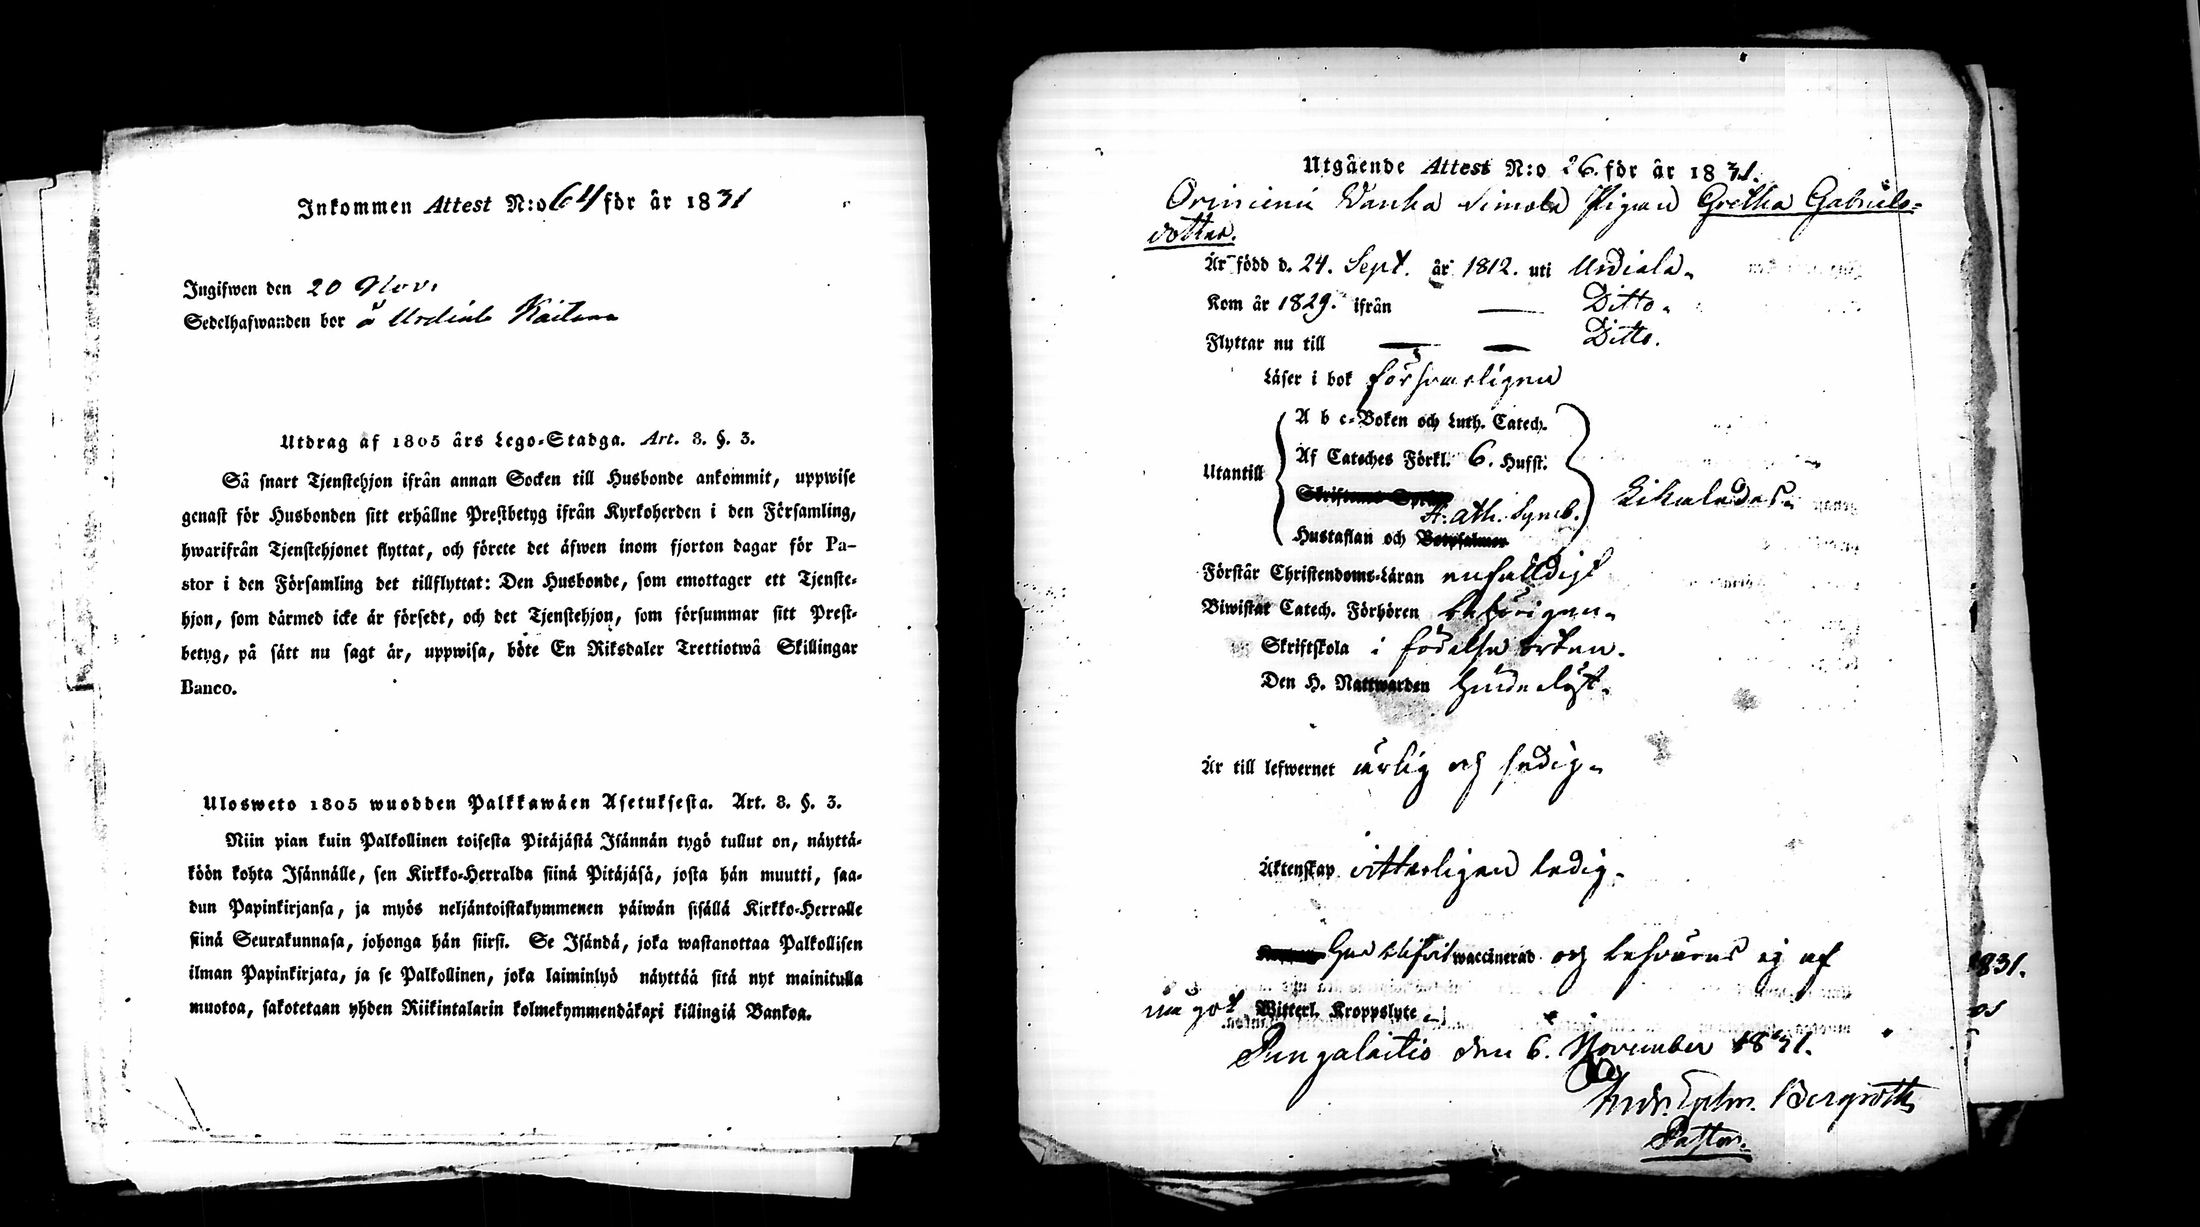 Inkommen Attest N:o 64 för år 1831
Ingifwen den 20 Nov.
Sedelhafwanden bor å Urdiala
Utdrag af 1805 års Lego-Stadga. Art. 8. §. 3.
Så snart Tjenstehjon ifrån annan Socken till Husbonde ankommit, uppwise
genast för Husbonden sitt erhållne Prestbetyg ifrån Kyrkoherden i den Församling,
hwarifrån Tjenstehjonet flyttat, och förete det äfwen inom fjorton dagar för Pa-
stor i den Församling det tillflyttat: Den Husbonde, som emottager ett Tjenste-
hjon, som därmed icke är försedt, och det Tjenstehjon, som försummar sitt Prest-
betyg, på sätt nu sagt är, uppwisa, böte En Riksdaler Trettiotwå Skillingar
Banco.
Ulosweto 1805 wuodden Palkkawäen Asetuksesta. Art. 8. §. 3.
Niin pian kuin Palkollinen toisesta Pitäjästä Isännän tygö tullut on, näyttä-
köön kohta Isännälle, sen Kirkko-Herralda siinä Pitäjäsä, josta hän muutti, saa-
dun Papinkirjansa, ja myös neljäntoistakymmenen päiwän sisällä Kirkko-Herralle
siinä Seurakunnasa, johonga hän siirsi. Se Isändä, joka wastanottaa Palkollisen
ilman Papinkirjata, ja se Palkollinen, joka laiminlyö näyttää sitä nyt mainitulla
muotoa, sakotetaan yhden Riikintalarin kolmekymmendäkaxi killingiä Bankoa.
Utgående Attest N:o 26. för år 1831.
Wanha Pigan Gretha Gabriels-
dotter.
Är född d. 24. Sept. år 1812. uti Urdiala.
Kom år 1829. ifrån — Ditto.
Flyttar nu till — — Ditto.
Läser i bok försvarligen
A b c-Boken och Luth. Catech.
Af Cateches Förkl. 6. Hufst.
Utantill
Ath. Symb.
Hustaflan och
Förstår Christendoms-Läran enfaldigt
Biwistat Catech. Förhören behörigen.
Skriftskola i födelse orten.
Den H. Nattwarden hinderlöst.
Är till lefwernet ärlig och sedig.
Äktenskap vitterligen ledig.
Har blifvit waccinerad och besväras ej af
något Witterl. Kroppslyte.
Pungalaitio den 6. November 1831.
Bergroth
Pastor.
1831.